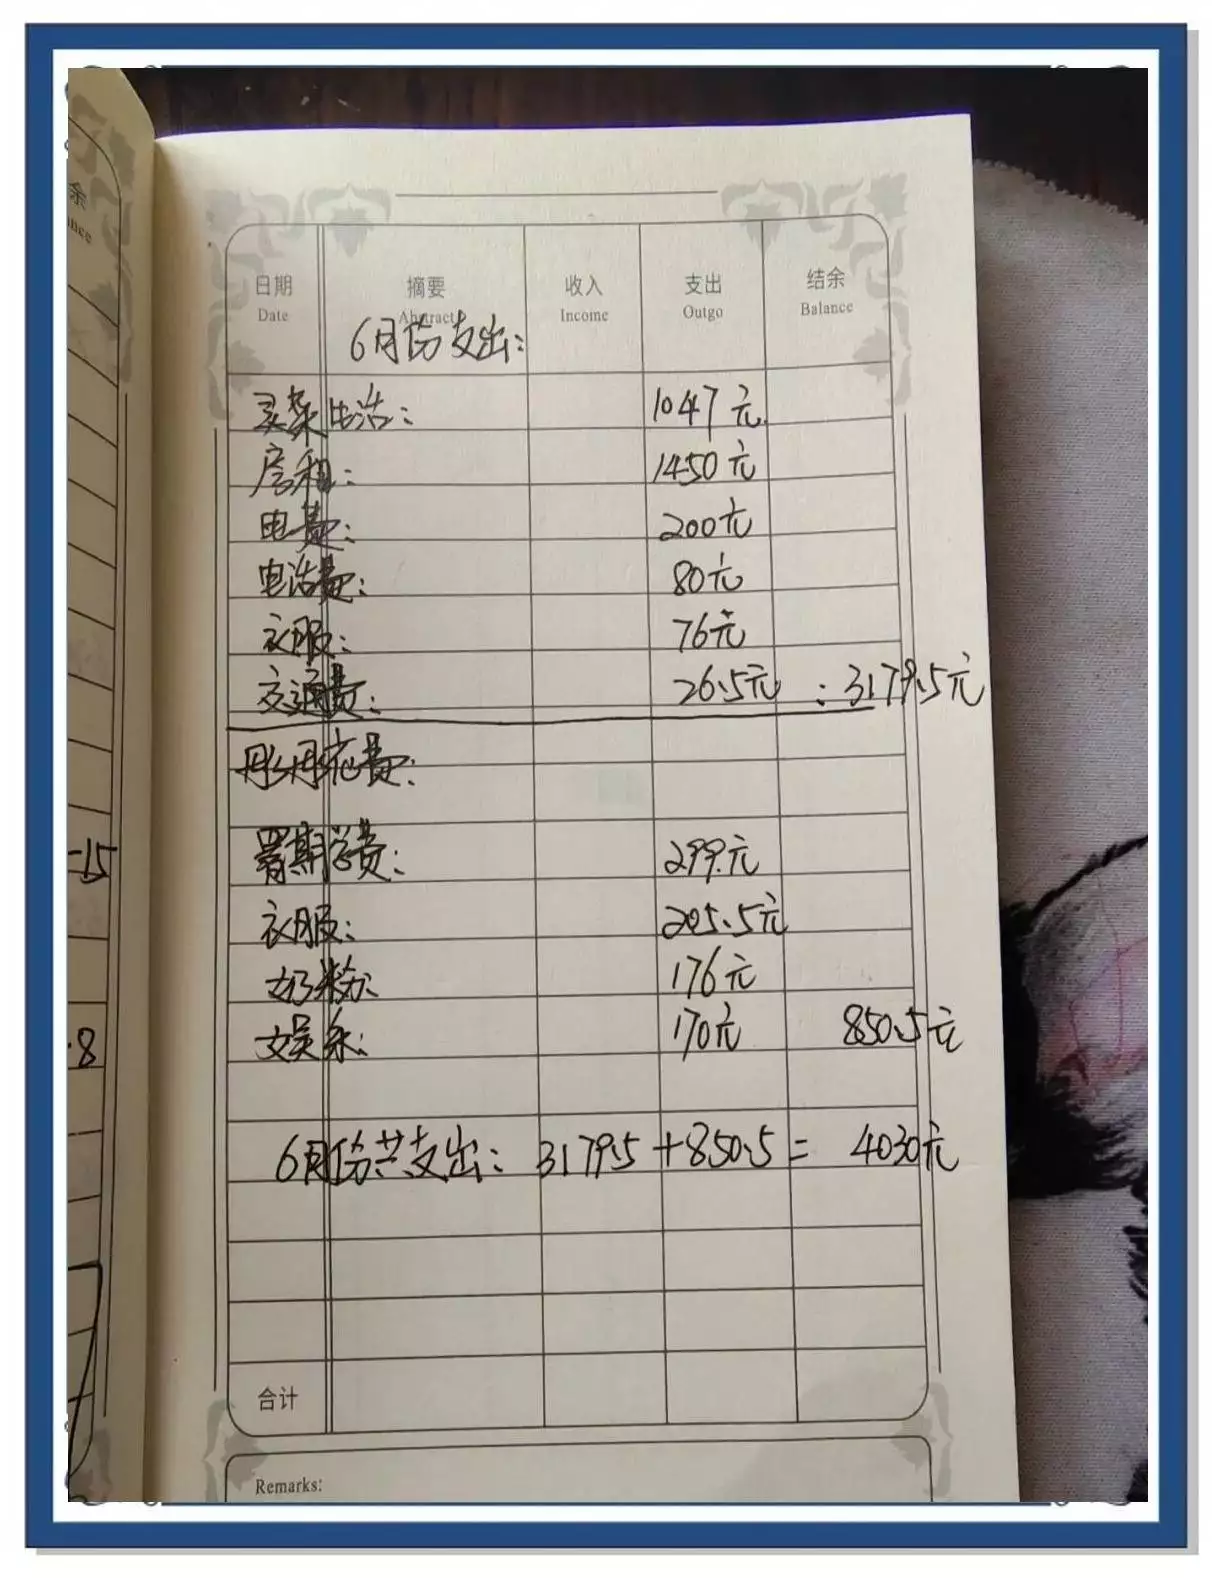 余
nce
-15
.8
日期 摘要 收入 支出 结余
Date Abstract Income Outgo Balance
6月份支出:
买菜生活: 1047元
房租: 1450元
电费: 200元
电话费: 80元
衣服: 76元
交通费: 26.5元 : 3179.5元
彤彤花费:
暑期学费: 299元
衣服: 205.5元
奶粉: 176元
娱乐: 170元 850.5元
6月份共支出: 3179.5+850.5= 4030元
合计
Remarks: